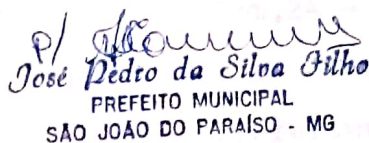 p/
José Pedro da Silva Filho
PREFEITO MUNICIPAL
SÃO JOÃO DO PARAÍSO - MG